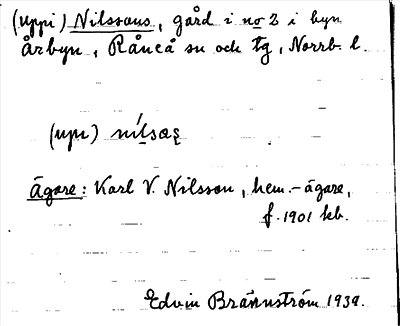 (Uppi) Nilssons, gård i no 2 i byn
Årbyn, Råneå sn och tg, Norrb. l.
(upı) nílsaş
Ägare: Karl V. Nilsson, hem.-ägare,
f. 1901 hb.
Edvin Brännström 1939.